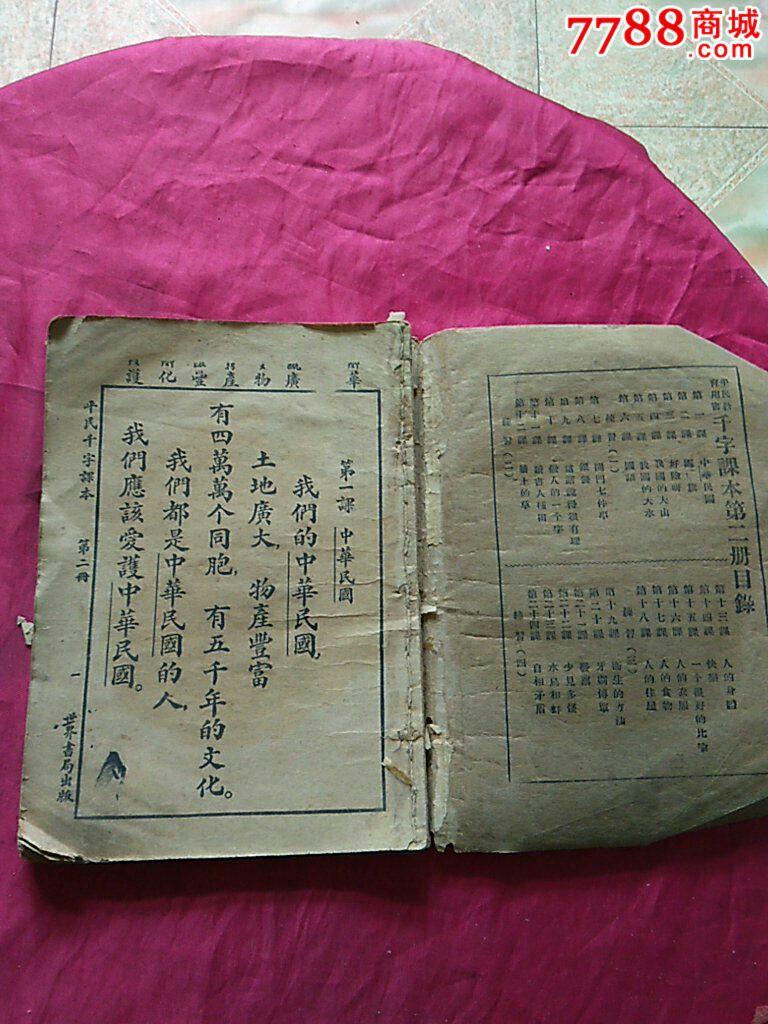 7788商城
.com
平民教育用書 千字課本第二册目錄
第一課 中華民國
第二課 國旗
第三課 好險呀
第四課 我國的大山
第五課 我國的大水
第六課 國語
練習(一)
第七課 開門七件事
第八課
第九課
第十課 做人的一個字
第十一課
第十二課 牆上的草
練習(二)
第十三課 人的身體
第十四課
第十五課 一個很好的比喻
第十六課 人的衣服
第十七課 人的食物
第十八課 人的住屋
練習(三)
第十九課 衛生的方法
第二十課
第二十一課
第二十二課 少見多怪
第二十三課
第二十四課 自相矛盾
練習(四)
華 廣 物 產 豐 化 護
第一課 中華民國
我們的中華民國,
土地廣大,物產豐富
有四萬萬个同胞,有五千年的文化。
我們都是中華民國的人,
我們應該愛護中華民國。
平民千字課本 第二冊 一 世界書局出版